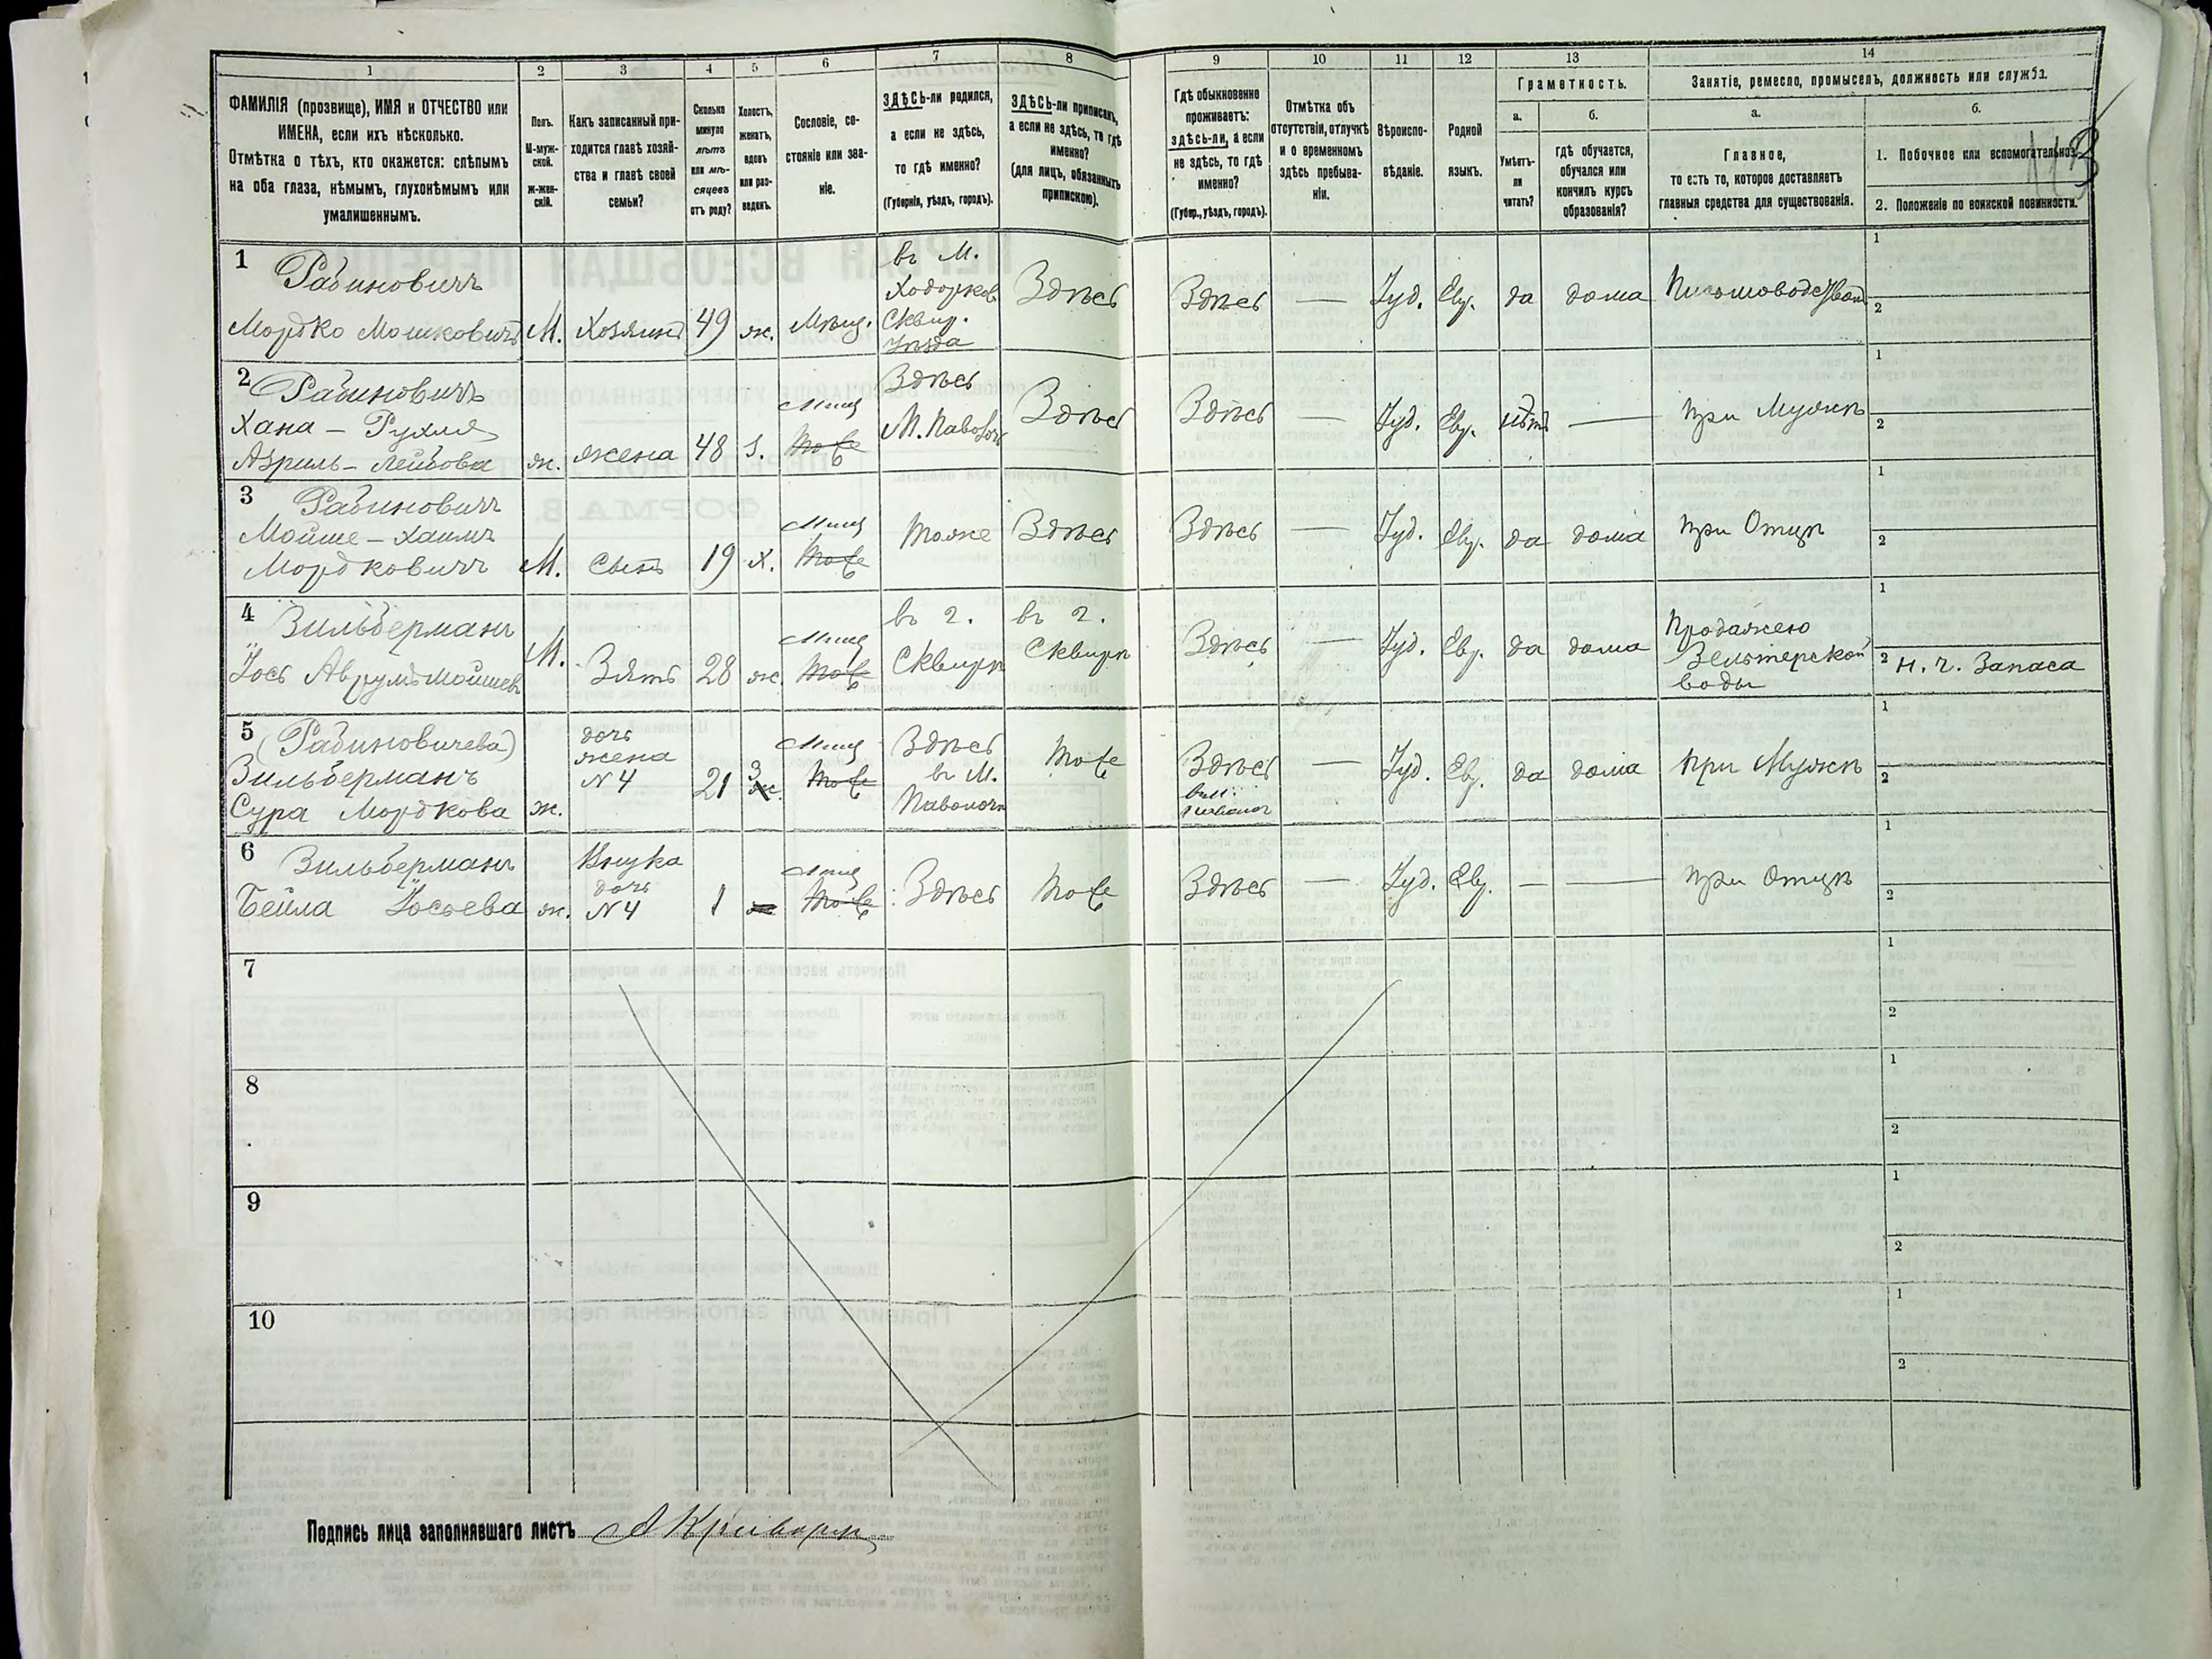 1 2 3 4 5 6 7 8 9 10 11 12 13 14
ФАМИЛІЯ (прозвище), ИМЯ и ОТЧЕСТВО или
ИМЕНА, если ихъ нѣсколько.
Отмѣтка о тѣхъ, кто окажется: слѣпымъ
на оба глаза, нѣмымъ, глухонѣмымъ или
умалишеннымъ.
Полъ.
М-муж-
ской.
ж-жен-
скій.
Какъ записанный при-
ходится главѣ хозяй-
ства и главѣ своей
семьи?
Сколько
минуло
лѣтъ
или мѣ-
сяцевъ
отъ роду?
Холостъ,
женатъ,
вдовъ
или раз-
веденъ.
Сословіе, со-
стояніе или зва-
ніе.
ЗДѢСЬ-ли родился,
а если не здѣсь,
то гдѣ именно?
(Губернія, уѣздъ, городъ).
ЗДѢСЬ-ли приписанъ,
а если не здѣсь, то гдѣ
именно?
(для лицъ, обязанныхъ
припискою).
Гдѣ обыкновенно
проживаетъ:
здѣсь-ли, а если
не здѣсь, то гдѣ
именно?
(Губер., уѣздъ, городъ).
Отмѣтка объ
отсутствіи, отлучкѣ
и о временномъ
здѣсь пребыва-
ніи.
Вѣроиспо-
вѣданіе.
Родной
языкъ.
Грамотность.
а.
Умѣетъ-
ли
читать?
б.
гдѣ обучается,
обучался или
кончилъ курсъ
образованія?
Занятіе, ремесло, промыселъ, должность или служба.
а.
Главное,
то есть то, которое доставляетъ
главныя средства для существованія.
б.
1. Побочное или вспомогательное.
2. Положеніе по воинской повинности.
1 Рабиновичъ
Мордко Мошковичъ М. Хозяинъ 49 ж. Мѣщ.
въ М.
Ходорков
Сквир.
Уѣзда
Здѣсь Здѣсь — Іуд. Евр. да дома Письмоводствомъ
1
2
2 Рабиновичъ
Хана - Рухля
Азриль-Лейбова ж. жена 48 з. Мѣщ
Тоже
Здѣсь
М. Паволочь
Здѣсь Здѣсь — Іуд. Евр. нѣтъ — при Мужѣ
1
2
3 Рабиновичъ
Мойше - Хаимъ
Мордковичъ М. Сынъ 19 х. Мѣщ
Тоже
Тоже Здѣсь Здѣсь — Іуд. Евр. да дома при Отцѣ
1
2
4 Зильберманъ
Іось Аврумъ Мошкев М. Зять 28 ж. Мѣщ
Тоже
въ г.
Сквирѣ
въ г.
Сквирѣ
Здѣсь — Іуд. Евр. да дома
Продажею
Зельтерской
воды
1
2 н. ч. Запаса
5 (Рабиновичева)
Зильберманъ
Сура Мордкова ж.
дочь
жена
N 4
21 З Мѣщ
Тоже
Здѣсь
въ М.
Паволочи
Тоже Здѣсь — Іуд. Евр. да дома при Мужѣ
1
2
6 Зильберманъ
Бейла Іосьева ж.
Внука
дочь
N 4
1 Мѣщ
Тоже
Здѣсь Тоже Здѣсь — Іуд. Евр. — — при Отцѣ
1
2
7
1
2
8
1
2
9
1
2
10
1
2
Подпись лица заполнявшаго листъ